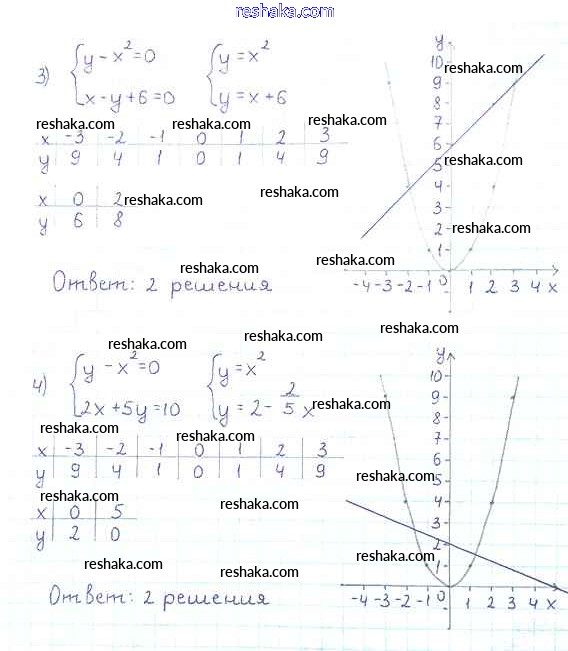 reshaka.com
3) { y - x² = 0 { y = x²
{ x - y + 6 = 0 { y = x + 6
reshaka.com reshaka.com reshaka.com
x -3 -2 -1 0 1 2 3
y 9 4 1 0 1 4 9
reshaka.com reshaka.com
x 0 2
y 6 8
reshaka.com
Ответ: 2 решения
y
10
9
8
7
6
5
4
3
2
1
-4 -3 -2 -1 0 1 2 3 4 x
reshaka.com
reshaka.com
reshaka.com
reshaka.com
reshaka.com
reshaka.com
reshaka.com
reshaka.com
4) { y - x² = 0 { y = x²
{ 2x + 5y = 10 { y = 2 - 2/5 x
reshaka.com
reshaka.com reshaka.com
x -3 -2 -1 0 1 2 3
y 9 4 1 0 1 4 9
reshaka.com
x 0 5
y 2 0
reshaka.com
reshaka.com
Ответ: 2 решения
y
10
9
8
7
6
5
4
3
2
1
-4 -3 -2 -1 0 1 2 3 4 x
reshaka.com
reshaka.com